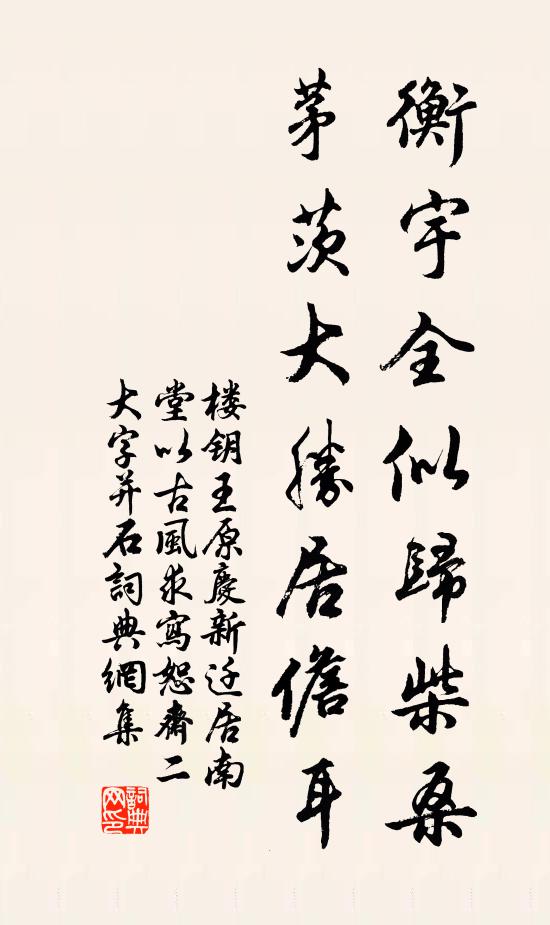 衡宇全似歸柴桑
茅茨大勝居儋耳
楼钥王原慶新迁居南
堂以古風求寫恕齋二
大字并石詞典網集
詞典
网印